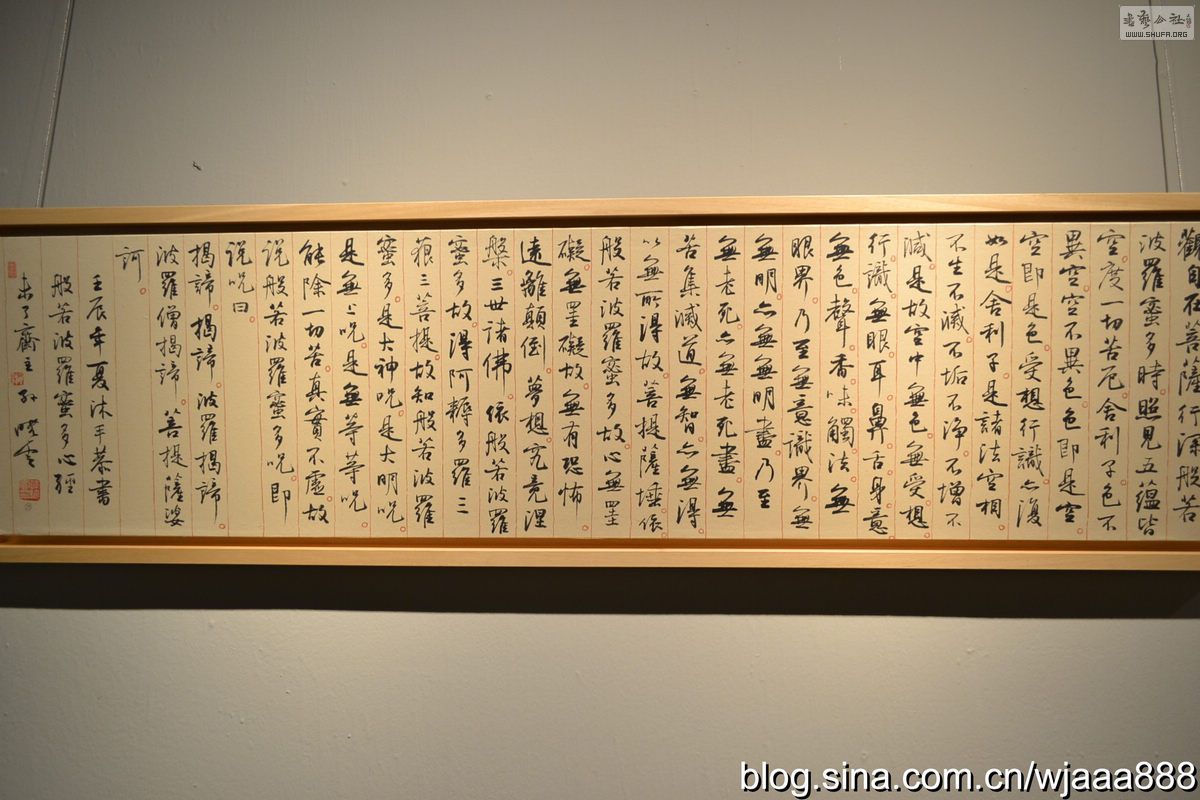 觀自在菩薩行深般若
波羅蜜多時照見五蘊皆
空度一切苦厄舍利子色不
異空空不異色色即是空
空即是色受想行識亦復
如是舍利子是諸法空相
不生不滅不垢不淨不增不
減是故空中無色無受想
行識無眼耳鼻舌身意
無色聲香味觸法無
眼界乃至無意識界無
無明亦無無明盡乃至
無老死亦無老死盡無
苦集滅道無智亦無得
以無所得故菩提薩埵依
般若波羅蜜多故心無罣
礙無罣礙故無有恐怖
遠離顛倒夢想究竟涅
槃三世諸佛依般若波羅
蜜多故得阿耨多羅三
藐三菩提故知般若波羅
蜜多是大神呪是大明呪
是無上呪是無等等呪
能除一切苦真實不虛故
說般若波羅蜜多呪即
說呪曰
揭諦揭諦波羅揭諦
波羅僧揭諦菩提薩婆
訶
壬辰年夏沐手恭書
般若波羅蜜多心經
未了齋主孫曉雲
書藝公社
WWW.SHUFA.ORG
blog.sina.com.cn/wjaaa888